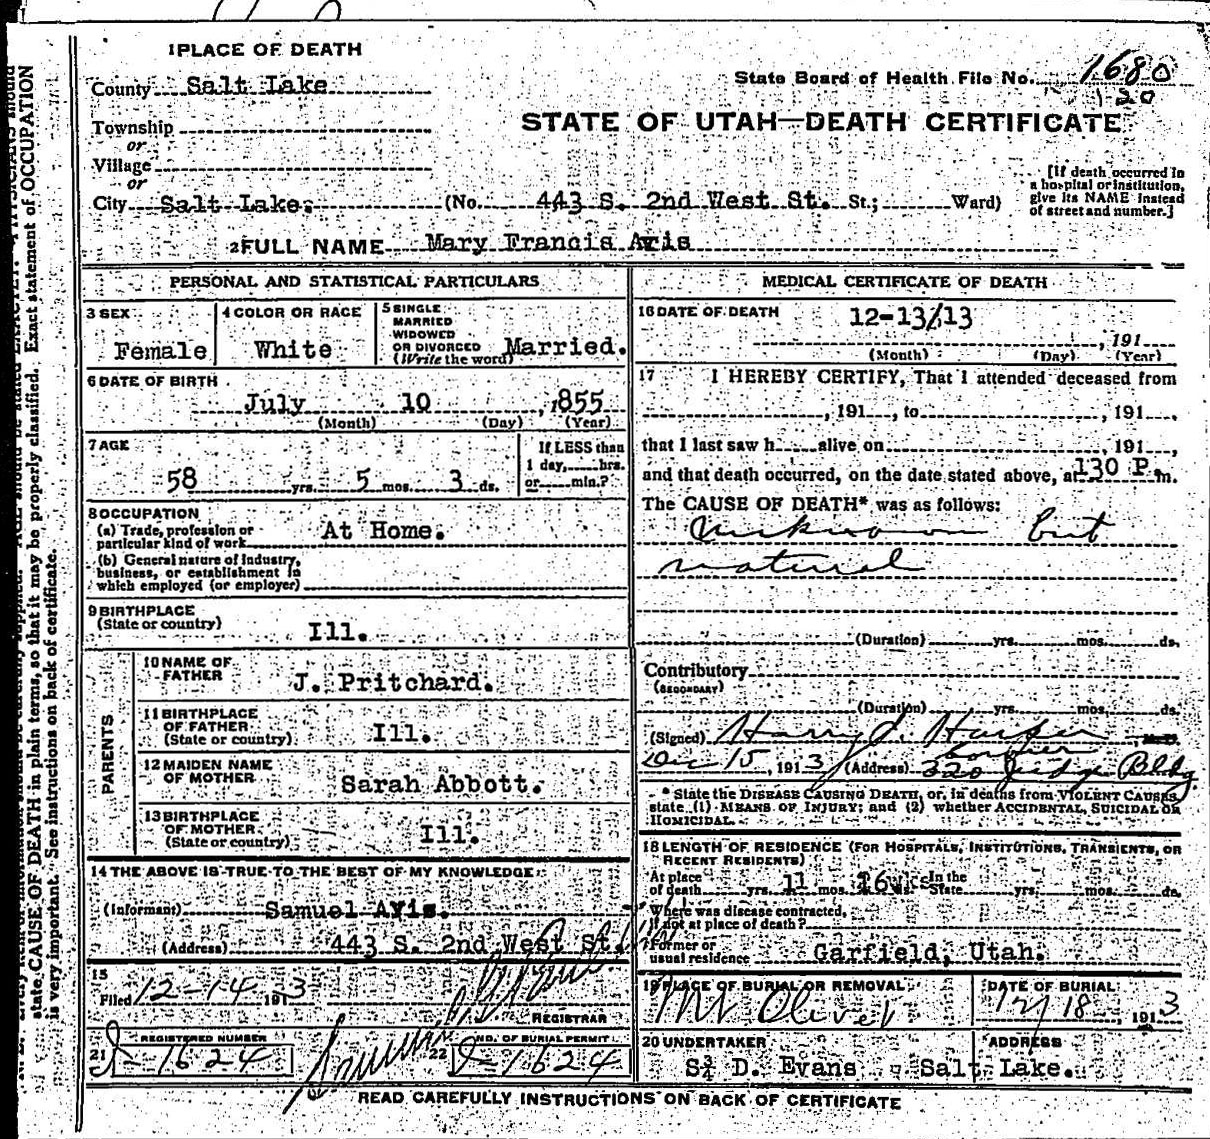 1 PLACE OF DEATH
County Salt Lake
State Board of Health File No. 1680
Township
or
Village
or
City Salt Lake.
STATE OF UTAH—DEATH CERTIFICATE
(No. 443 S. 2nd West St. St.; Ward)
[If death occurred in
a hospital or institution,
give its NAME instead
of street and number.]
2 FULL NAME Mary Francis Avis
PERSONAL AND STATISTICAL PARTICULARS
3 SEX
Female
4 COLOR OR RACE
White
5 SINGLE
MARRIED
WIDOWED
OR DIVORCED
(Write the word) Married.
6 DATE OF BIRTH
July 10, 1855
(Month) (Day) (Year)
7 AGE
58 yrs. 5 mos. 3 ds.
If LESS than
1 day, hrs.
or min.?
8 OCCUPATION
(a) Trade, profession or
particular kind of work At Home.
(b) General nature of Industry,
business, or establishment in
which employed (or employer)
9 BIRTHPLACE
(State or country) Ill.
PARENTS
10 NAME OF
FATHER J. Pritchard.
11 BIRTHPLACE
OF FATHER
(State or country) Ill.
12 MAIDEN NAME
OF MOTHER Sarah Abbott.
13 BIRTHPLACE
OF MOTHER
(State or country) Ill.
14 THE ABOVE IS TRUE TO THE BEST OF MY KNOWLEDGE
(Informant) Samuel Avis.
(Address) 443 S. 2nd West St.
15
Filed 12-14 1913
REGISTRAR
21 REGISTERED NUMBER
1624
22 NO. OF BURIAL PERMIT
1624
MEDICAL CERTIFICATE OF DEATH
16 DATE OF DEATH 12-13/13
, 191
(Month) (Day) (Year)
17 I HEREBY CERTIFY, That I attended deceased from
, 191 , to , 191 ,
that I last saw h alive on , 191 ,
and that death occurred, on the date stated above, at 130 P. m.
The CAUSE OF DEATH* was as follows:
unknown but
natural
(Duration) yrs. mos. ds.
Contributory
(SECONDARY)
(Duration) yrs. mos. ds.
(Signed) Harry J. M.D.
Dec 15, 1913 (Address) 320 Judge Bldg
* State the DISEASE CAUSING DEATH, or, in deaths from VIOLENT CAUSES,
state (1) MEANS OF INJURY; and (2) whether ACCIDENTAL, SUICIDAL OR
HOMICIDAL.
18 LENGTH OF RESIDENCE (FOR HOSPITALS, INSTITUTIONS, TRANSIENTS, OR
RECENT RESIDENTS)
At place
of death yrs. 11 mos. In the
State yrs. mos. ds.
Where was disease contracted,
if not at place of death?
Former or
usual residence Garfield, Utah.
19 PLACE OF BURIAL OR REMOVAL
Mt Olivet
DATE OF BURIAL
12/18, 1913
20 UNDERTAKER
S. D. Evans
ADDRESS
Salt Lake.
READ CAREFULLY INSTRUCTIONS ON BACK OF CERTIFICATE
state CAUSE OF DEATH in plain terms, so that it may be properly classified. Exact statement of OCCUPATION
is very important. See instructions on back of certificate.